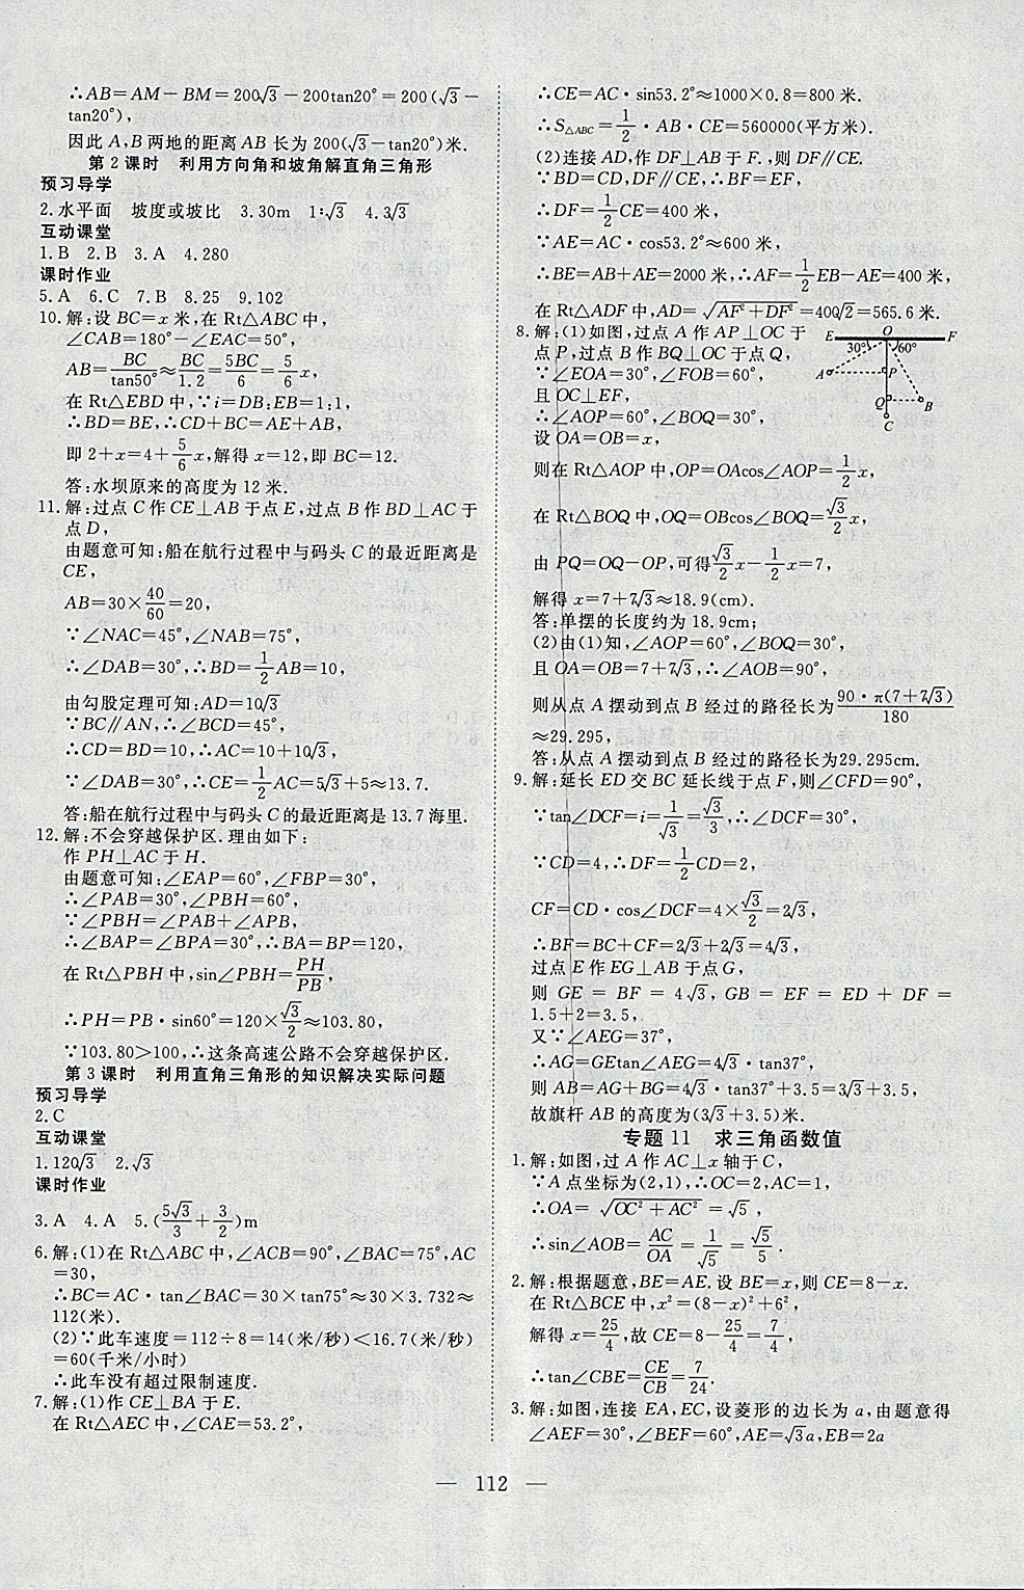 ∴AB=AM－BM=200√3－200tan20°=200(√3－
tan20°),
因此 A,B 两地的距离 AB 长为 200(√3－tan20°)米.
第 2 课时　利用方向角和坡角解直角三角形
预习导学
2.水平面　坡度或坡比　3.30m　1∶√3　4.3√3
互动课堂
1.B　2.B　3.A　4.280
课时作业
5.A　6.C　7.B　8.25　9.102
10.解:设 BC=x 米,在 Rt△ABC 中,
∠CAB=180°－∠EAC=50°,
AB=BC/tan50°≈BC/1.2=5BC/6=5/6x,
在 Rt△EBD 中,∵i=DB:EB=1:1,
∴BD=BE,∴CD+BC=AE+AB,
即 2+x=4+5/6x,解得 x=12,即 BC=12.
答:水坝原来的高度为 12 米.
11.解:过点 C 作 CE⊥AB 于点 E,过点 B 作 BD⊥AC 于
点 D,
由题意可知:船在航行过程中与码头 C 的最近距离是
CE,
AB=30×40/60=20,
∵∠NAC=45°,∠NAB=75°,
∴∠DAB=30°,∴BD=1/2AB=10,
由勾股定理可知:AD=10√3
∵BC∥AN,∴∠BCD=45°,
∴CD=BD=10,∴AC=10+10√3,
∵∠DAB=30°,∴CE=1/2AC=5√3+5≈13.7.
答:船在航行过程中与码头 C 的最近距离是 13.7 海里.
12.解:不会穿越保护区.理由如下:
作 PH⊥AC 于 H.
由题意可知:∠EAP=60°,∠FBP=30°,
∴∠PAB=30°,∠PBH=60°,
∵∠PBH=∠PAB+∠APB,
∴∠BAP=∠BPA=30°,∴BA=BP=120,
在 Rt△PBH 中,sin∠PBH=PH/PB,
∴PH=PB·sin60°=120×√3/2≈103.80,
∵103.80>100,∴这条高速公路不会穿越保护区.
第 3 课时　利用直角三角形的知识解决实际问题
预习导学
2.C
互动课堂
1.120√3　2.√3
课时作业
3.A　4.A　5.(5√3/3+3/2)m
6.解:(1)在 Rt△ABC 中,∠ACB=90°,∠BAC=75°,AC
=30,
∴BC=AC·tan∠BAC=30×tan75°≈30×3.732≈
112(米).
(2)∵此车速度=112÷8=14(米/秒)<16.7(米/秒)
=60(千米/小时)
∴此车没有超过限制速度.
7.解:(1)作 CE⊥BA 于 E.
在 Rt△AEC 中,∠CAE=53.2°,
∴CE=AC·sin53.2°≈1000×0.8=800 米.
∴S△ABC=1/2·AB·CE=560000(平方米).
(2)连接 AD,作 DF⊥AB 于 F.,则 DF∥CE.
∵BD=CD,DF∥CE,∴BF=EF,
∴DF=1/2CE=400 米,
∵AE=AC·cos53.2°≈600 米,
∴BE=AB+AE=2000 米,∴AF=1/2EB－AE=400米,
在 Rt△ADF 中,AD=√(AF²+DF²)=400√2=565.6 米.
8.解:(1)如图,过点 A 作 AP⊥OC 于
点 P,过点 B 作 BQ⊥OC 于点 Q,
∵∠EOA=30°,∠FOB=60°,
且 OC⊥EF,
∴∠AOP=60°,∠BOQ=30°,
设 OA=OB=x,
E　O　F
30°　60°
A　P
Q　B
C
则在 Rt△AOP 中,OP=OAcos∠AOP=1/2x,
在 Rt△BOQ 中,OQ=OBcos∠BOQ=√3/2x,
由 PQ=OQ－OP,可得√3/2x－1/2x=7,
解得 x=7+7√3≈18.9(cm).
答:单摆的长度约为 18.9cm;
(2)由(1)知,∠AOP=60°,∠BOQ=30°,
且 OA=OB=7+7√3,∴∠AOB=90°,
则从点 A 摆动到点 B 经过的路径长为90·π(7+7√3)/180
≈29.295,
答:从点 A 摆动到点 B 经过的路径长为29.295cm.
9.解:延长 ED 交 BC 延长线于点 F,则∠CFD=90°,
∵tan∠DCF=i=1/√3=√3/3,∴∠DCF=30°,
∵CD=4,∴DF=1/2CD=2,
CF=CD·cos∠DCF=4×√3/2=2√3,
∴BF=BC+CF=2√3+2√3=4√3,
过点 E 作 EG⊥AB 于点 G,
则 GE = BF = 4√3, GB = EF = ED + DF =
1.5+2=3.5,
又∵∠AEG=37°,
∴AG=GEtan∠AEG=4√3·tan37°,
则 AB=AG+BG=4√3·tan37°+3.5=3√3+3.5,
故旗杆 AB 的高度为(3√3+3.5)米.
专题 11　求三角函数值
1.解:如图,过 A 作 AC⊥x 轴于 C,
∵A 点坐标为(2,1),∴OC=2,AC=1,
∴OA=√(OC²+AC²)=√5,
∴sin∠AOB=AC/OA=1/√5=√5/5.
2.解:根据题意,BE=AE.设 BE=x,则 CE=8－x.
在 Rt△BCE 中,x²=(8－x)²+6²,
解得 x=25/4,故 CE=8－25/4=7/4,
∴tan∠CBE=CE/CB=7/24.
3.解:如图,连接 EA,EC,设菱形的边长为 a,由题意得
∠AEF=30°,∠BEF=60°,AE=√3a,EB=2a
— 112 —